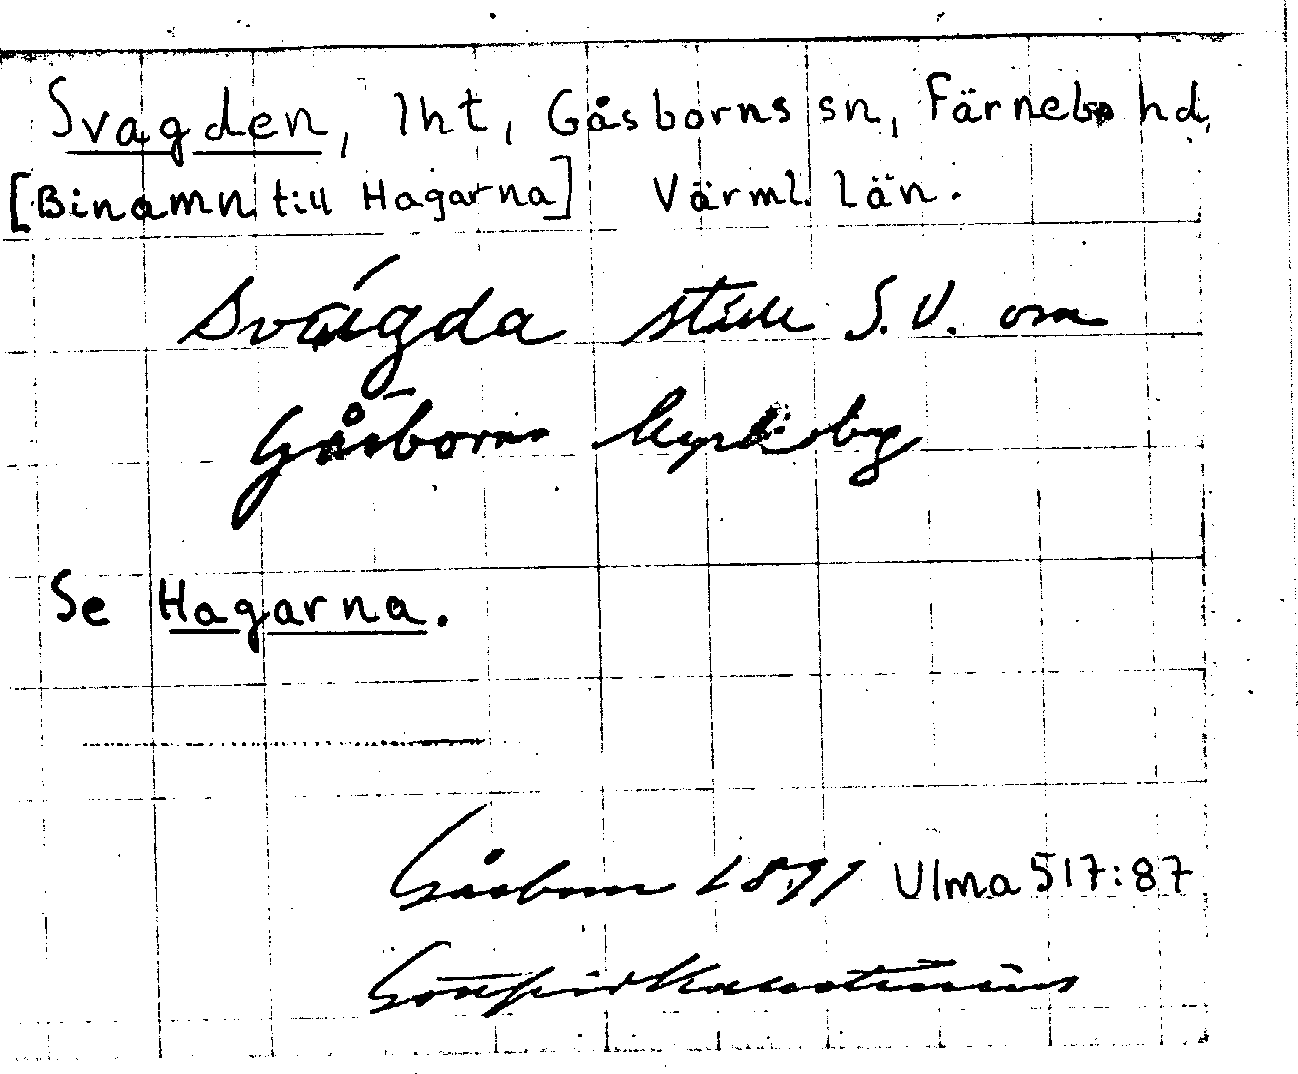 Svagden, lht, Gåsborns sn, Färnebo hd,
[Binamn till Hagarna] Värml. län.
Svágda ställe S.V. om
Gåsborns kyrkoby
Se Hagarna.
Gåsborn 1891 Ulma 517:87
Gottfrid Kallstenius